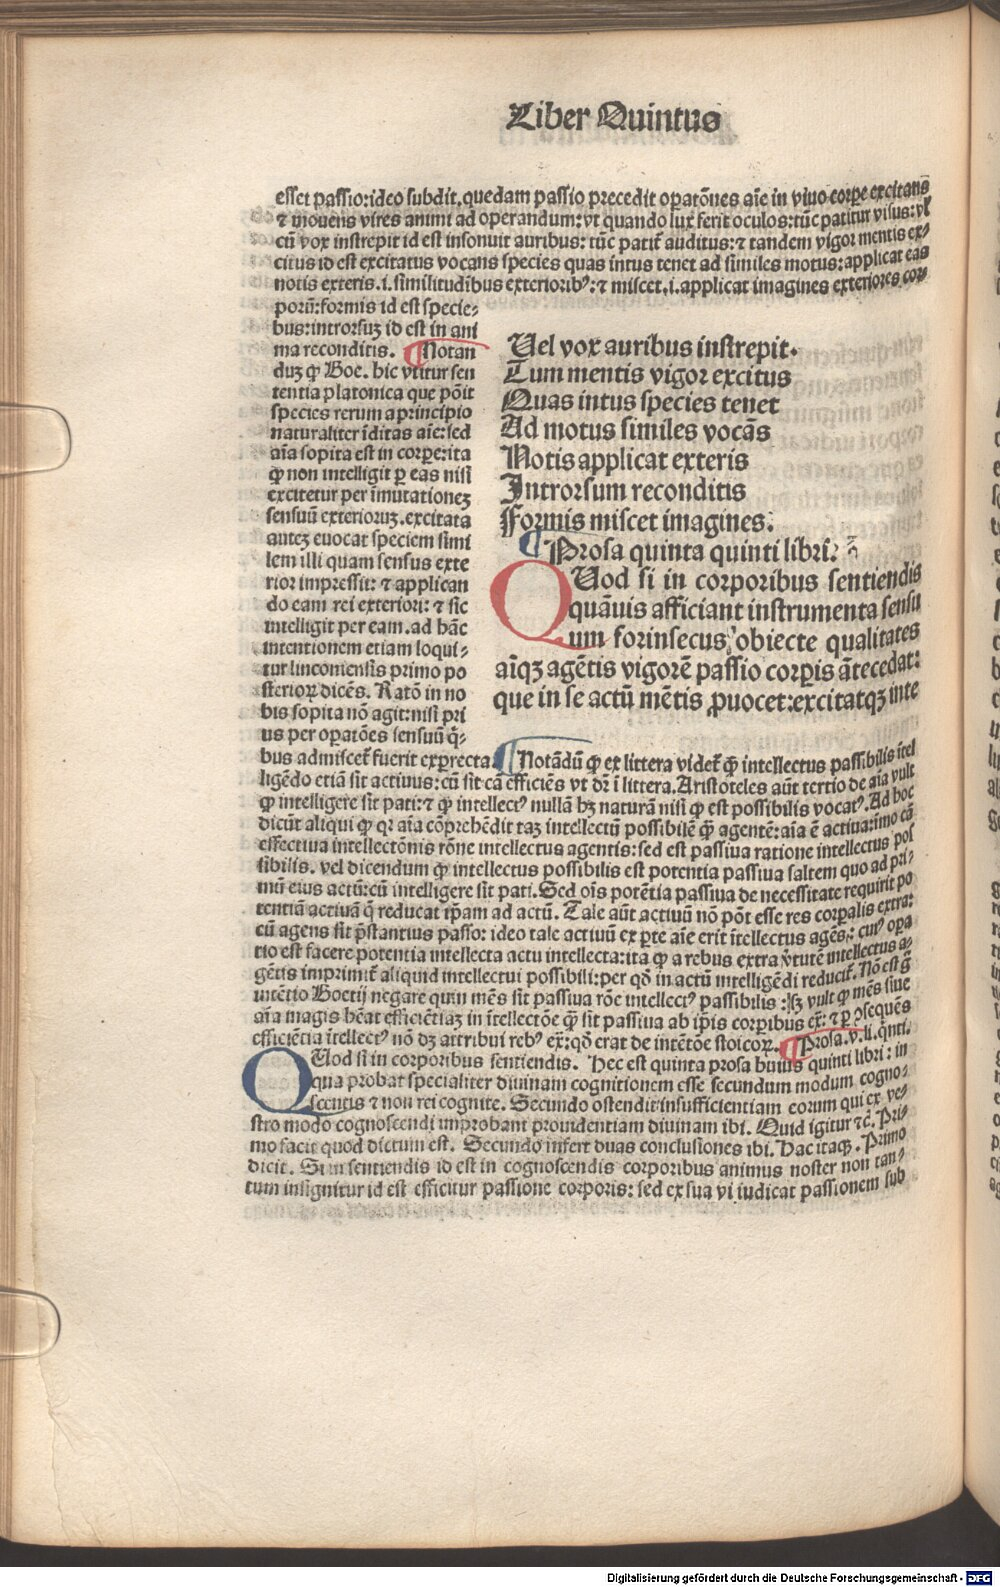 Liber Quintus
esset passio:ideo subdit.quedam passio precedit oꝑatōnes aīe in viuo corꝑe excitans
⁊ mouens vires animi ad operandum:vt quando lux ferit oculos:tūc patitur visus:vl̕
cū vox instrepit id est insonuit auribus: tūc patit̃ auditus:⁊ tandem vigor mentis ex⸗
citus id est excitatus vocans species quas intus tenet ad similes motus:applicat eas
notis exteris.i.similitudibus exterioribꝰ:⁊ miscet.i.applicat imagines exteriores cor⸗
porū:formis id est specie⸗
bus:introrsuꝫ id est in ani
ma reconditis. ¶Notan
duꝫ ꝙ Boe. hic vtitur sen
tentia platonica que pōit
species rerum a principio
naturaliter īditas aīe:sed
aīa sopita est in corꝑe:ita
ꝙ non intelligit ꝑ eas nisi
excitetur per īmutationeꝫ
sensuū exterioruꝫ.excitata
auteꝫ euocat speciem simi
lem illi quam sensus exte
rior impressit: ⁊ applican
do eam rei exteriori: ⁊ sic
intelligit per eam.ad hāc
intentionem etiam loqui⸗
tur linconiensis primo po
sterioꝝ dicēs. Ratō in no
bis sopita nō agit:nisi pri
us per oꝑatōes sensuū q̄⸗
bus admiscet̃ fuerit exꝑrecta.
Uel vox auribus instrepit.
Tum mentis vigor excitus
Quas intus species tenet
Ad motus similes vocās
Notis applicat exteris
Introrsum reconditis
Formis miscet imagines.
¶Prosa quinta quinti libri.
QUod si in corporibus sentiendis
quāuis afficiant instrumenta sensu
um forinsecus obiecte qualitates
aīqꝫ agētis vigorē passio corꝑis ātecedat:
que in se actū mētis ꝓuocet:excitatqꝫ inte
¶Notādū ꝙ ex littera videt̃ ꝙ intellectus passibilis ītel
ligēdo etiā sit actiuus: cū sit cā efficiēs vt dr̄ ī littera.Aristoteles aūt tertio de aīa vult
ꝙ intelligere sit pati:⁊ ꝙ intellectꝰ nullā hꝫ naturā nisi ꝙ est possibilis vocatꝰ.Ad hoc
dicūt aliqui ꝙ qꝛ aīa cōprehēdit taꝫ intellectū possibilē ꝙ̄ agentē:aīa ē actiua:īmo cā
effectiua intellectōnis rōne intellectus agentis:sed est passiua ratione intellectus pos
sibilis. vel dicendum ꝙ intellectus possibilis est potentia passiua saltem quo ad pri⸗
mū eius actū:cū intelligere sit pati.Sed oīs potētia passiua de necessitate requirit po
tentiā actiuā q̄ reducat ip̄am ad actū. Tale aūt actiuū nō pōt esse res corꝑalis extra:
cū agens sit p̄stantius passo: ideo tale actiuū ex ꝑte aīe erit ītellectus agēs: cuiꝰ oꝑa
tio est facere potentia intellecta actu intellecta:ita ꝙ a rebus extra v̓tutē intellectus a⸗
gētis imprimit̃ aliquid intellectui possibili:per qd̄ in actū intelligēdi reducit̃. Nō est g̊
intētio Boetij negare quin mēs sit passiua rōe intellectꝰ passibilis :sꝫ vult ꝙ mēs siue
aīa magis hēat efficiētiaꝫ in ītellectōe ꝙ̄ sit passiua ab ip̄is corꝑibus ex̄: ⁊ ꝑ ꝯsequēs
efficiētia ītellectꝰ nō dꝫ attribui rebꝰ ex̄:qd̄ erat de intētōe stoicoꝝ. ¶Prosa.v.li.q̄nti.
QUod si in corporibus sentiendis. Hec est quinta prosa huius quinti libri: in
qua probat specialiter diuinam cognitionem esse secundum modum cogno⸗
scentis ⁊ non rei cognite. Secundo ostendit insufficientiam eorum qui ex ve⸗
stro modo cognoscendi improbant prouidentiam diuinam ibi. Quid igitur ⁊c̄. Pri⸗
mo facit quod dictum est. Secundo infert duas conclusiones ibi. Hac itaqꝫ. Primo
dicit. Si in sentiendis id est in cognoscendis corporibus animus noster non tan⸗
tum insignitur id est efficitur passione corporis: sed ex sua vi iudicat passionem sub
Digitalisierung gefördert durch die Deutsche Forschungsgemeinschaft - DFG